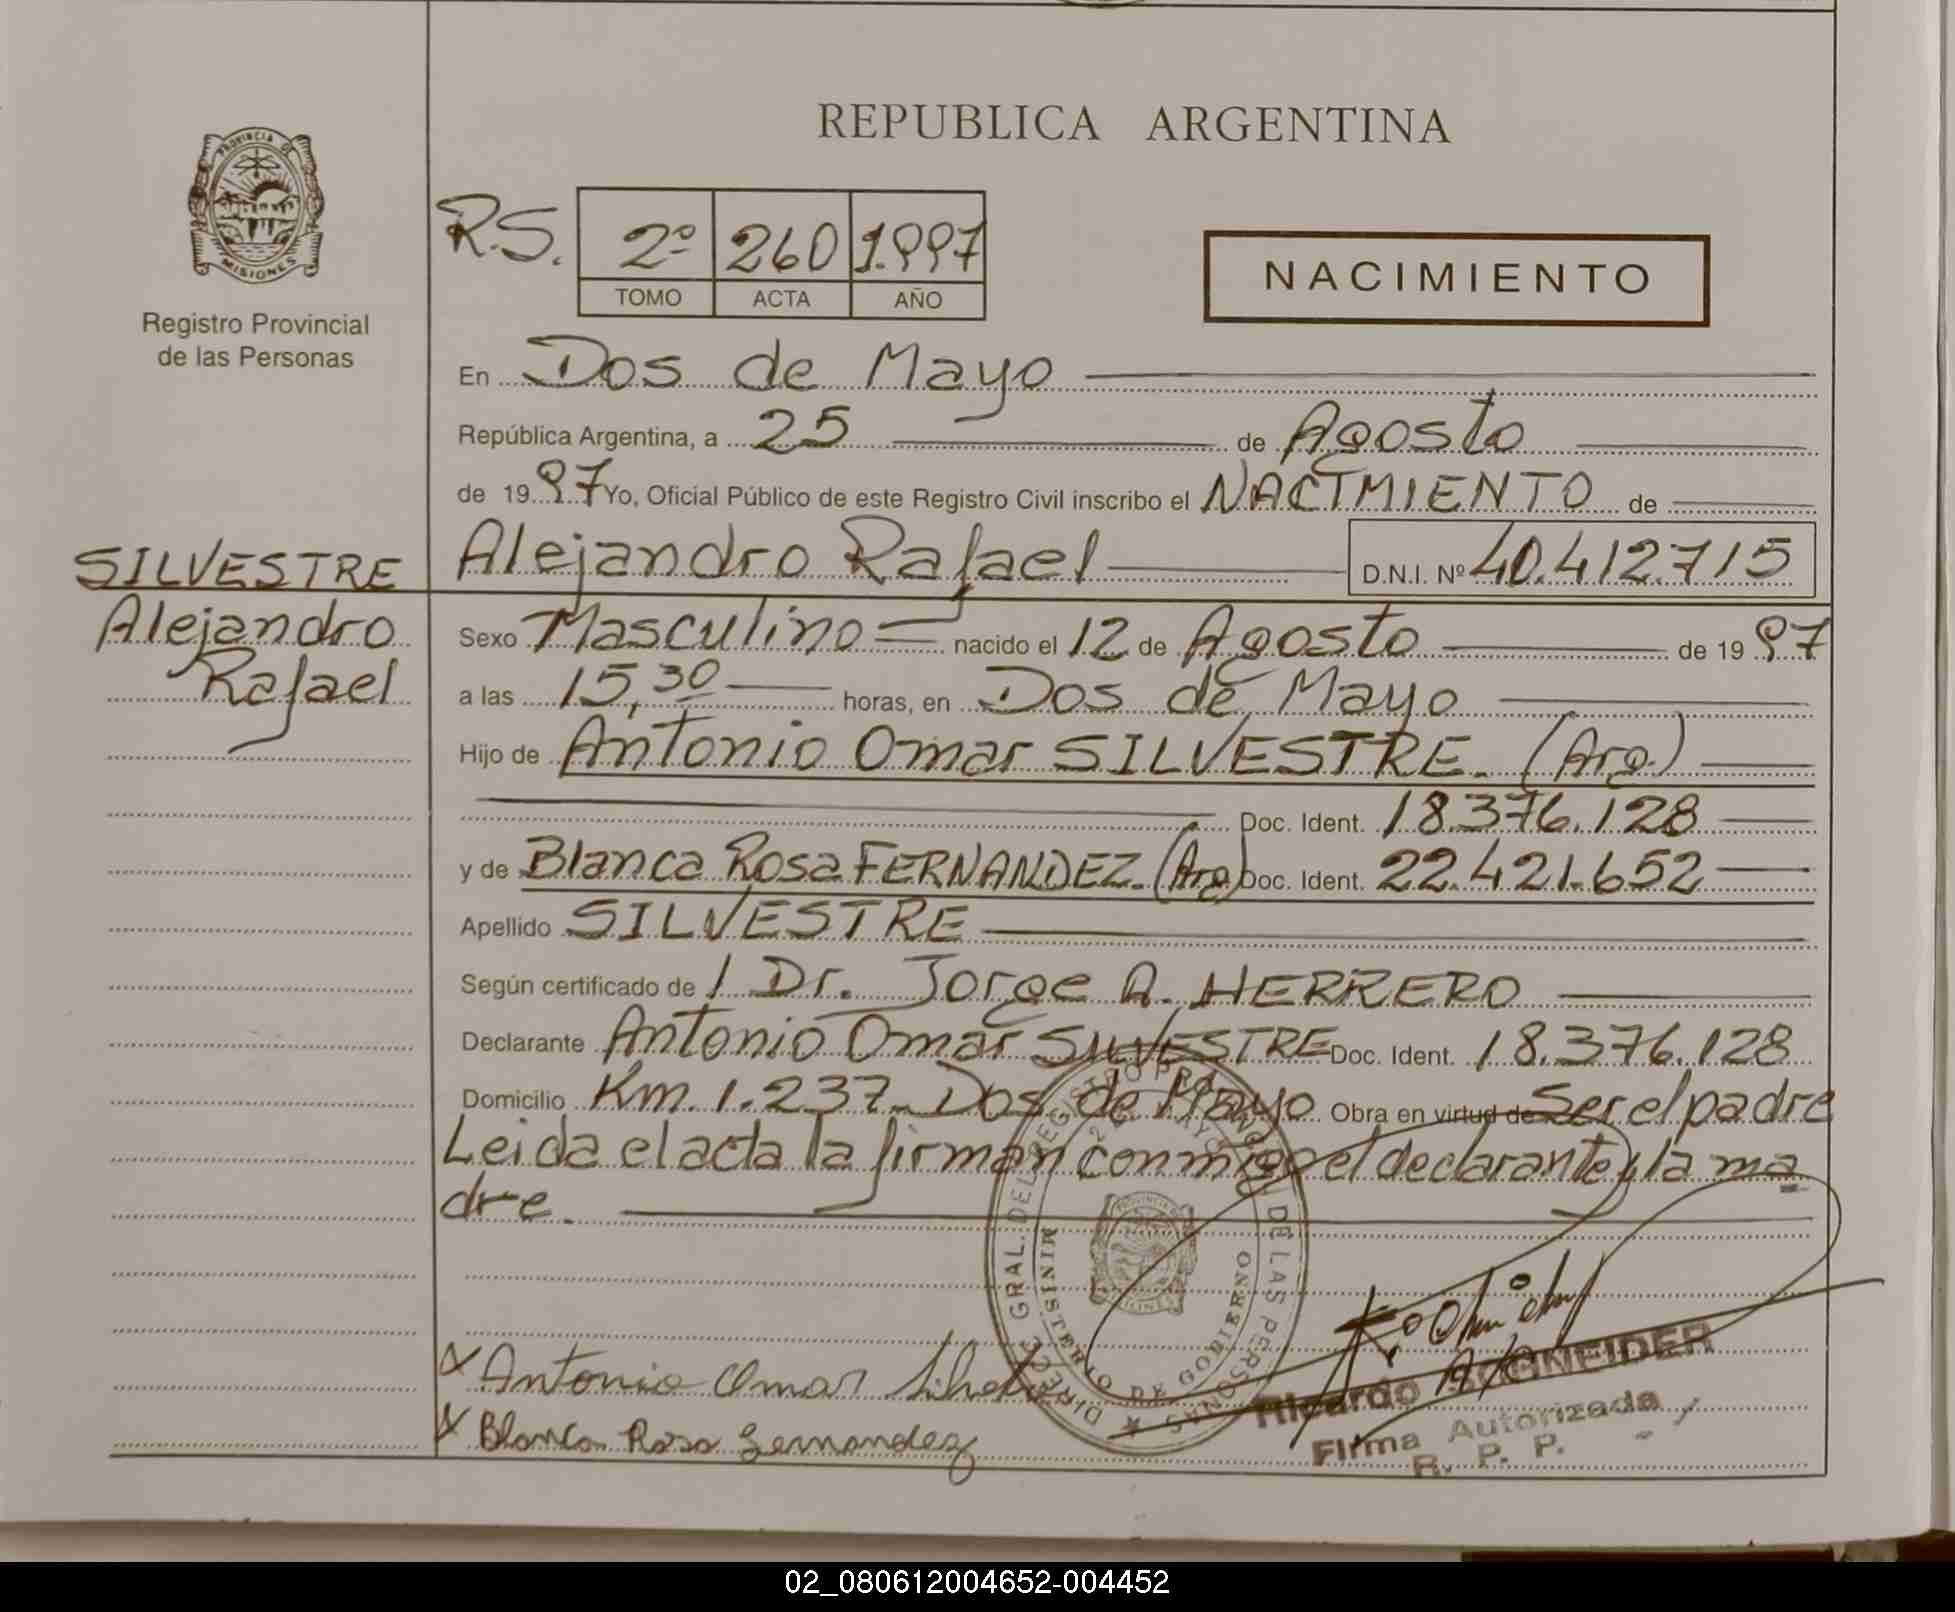 REPUBLICA ARGENTINA
PROVINCIA DE
MISIONES
Registro Provincial
de las Personas
R.S. 2º 260 1.997
TOMO ACTA AÑO
NACIMIENTO
En Dos de Mayo
República Argentina, a 25 de Agosto
de 19 97 Yo, Oficial Público de este Registro Civil inscribo el NACIMIENTO de
SILVESTRE
Alejandro
Rafael
Alejandro Rafael D.N.I. Nº 40.412.715
Sexo Masculino nacido el 12 de Agosto de 19 97
a las 15,30 horas, en Dos de Mayo
Hijo de Antonio Omar SILVESTRE. (Arg.)
Doc. Ident. 18.376.128
y de Blanca Rosa FERNANDEZ. (Arg) Doc. Ident. 22.421.652
Apellido SILVESTRE
Según certificado de / Dr. Jorge A. HERRERO
Declarante Antonio Omar SILVESTRE Doc. Ident. 18.376.128
Domicilio Km. 1.237. Dos de Mayo Obra en virtud de Ser el padre
Leida el acta la firman conmigo el declarante y la ma
dre.
DIRECC. GRAL. DEL REGISTRO PROVINCIAL DE LAS PERSONAS
MINISTERIO DE GOBIERNO
x Antonio Omar
x Blanca Rosa Fernandez
Ricardo SCHNEIDER
Firma Autorizada
R. P. P.
02_080612004652-004452